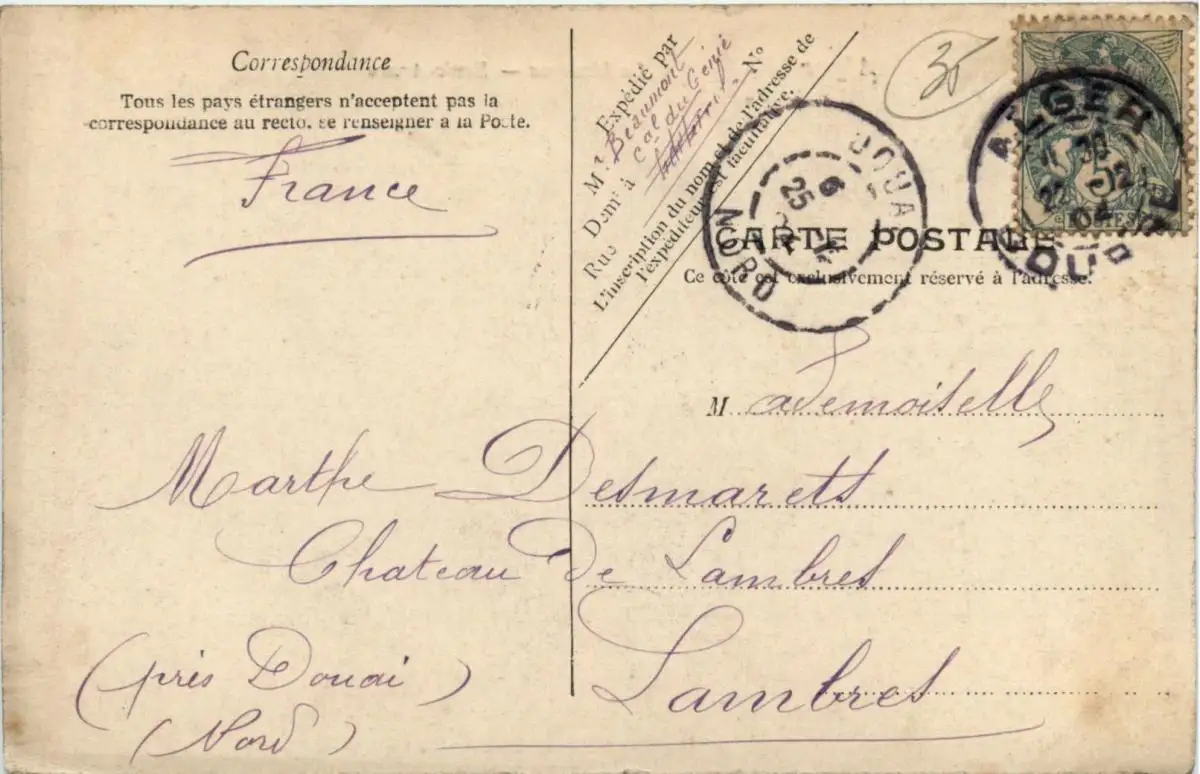 Correspondance
Tous les pays étrangers n'acceptent pas la
correspondance au recto, se renseigner à la Poste.
France
Expédié par
Mr Beaumont
Cal du Génie
Demt à
Rue Nº
L'inscription du nom et de l'adresse de
l'expéditeur est facultative.
30
DOUAI
6
25
NORD
ALGER
22
04
POSTES
CARTE POSTALE
Ce côté est exclusivement réservé à l'adresse.
Mademoiselle
Marthe Desmarets
Chateau de Lambres
Lambres
(près Douai)
(Nord)